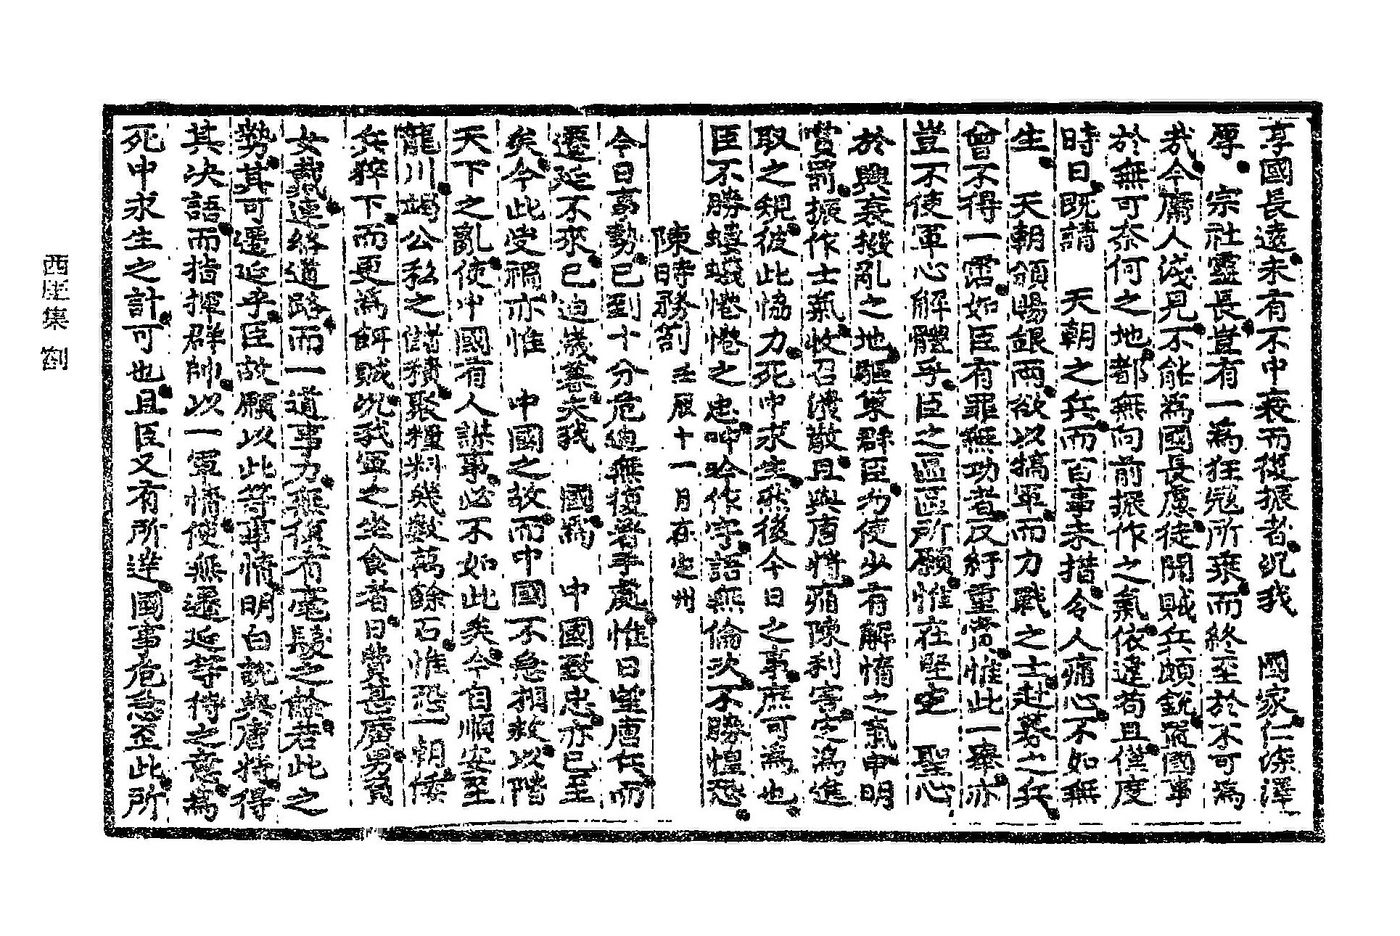 享國長遠未有不中衰而復振者況我　國家仁深澤
厚　宗社靈長豈有一爲狂寇所乘而終至於不可爲
哉今庸人淺見不能爲國長慮徒聞賊兵頗銳國事
於無可奈何之地都無向前振作之氣依違苟且僅度
時日旣請　天朝之兵而百事未措令人痛心不如無
生　天朝頒賜銀兩欲以犒軍而力戰之士赴募之兵
曾不得一霑如臣有罪無功者反紆重賞惟此一事亦
豈不使軍心解體乎臣之區區所願惟在堅定　聖心
於興衰撥亂之地驅策群臣勿使少有解惰之氣申明
賞罰振作士氣收召潰散且與唐將痛陳利害定爲進
取之規彼此協力死中求生然後今日之事庶可爲也
臣不勝螻蟻惓惓之忠呻吟作字語無倫次不勝惶恐
陳時務箚 壬辰十一月在定州
今日事勢已到十分危迫無復着手處惟日望唐兵而
遷延不來已迫歲暮夫我　國爲　中國致忠亦已至
矣今此受禍亦惟　中國之故而中國不急相救以階
天下之亂使中國有人謀事必不如此矣今自順安至
龍川竭公私之儲積聚糧料幾數萬餘石惟恐一朝倭
兵猝下而更爲餌賊況我軍之坐食者日費甚廣男負
女戴連絡道路而一道事力無復有毫髮之餘若此之
勢其可遷延乎臣故願以此等事情明白說與唐將得
其決語而指揮群帥以一軍情使無遷延等待之意爲
死中求生之計可也且臣又有所達國事危急至此所
西厓集 箚